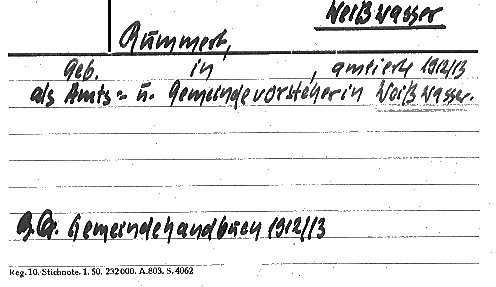 Weißwasser
Rummert,
geb. in , amtiert 1912/13
als Amts= u. Gemeindevorsteher in Weißwasser.
Gemeindehandbuch 1912/13
Reg. 10. Stichnote. 1. 50. 232000. A.803. S. 4062